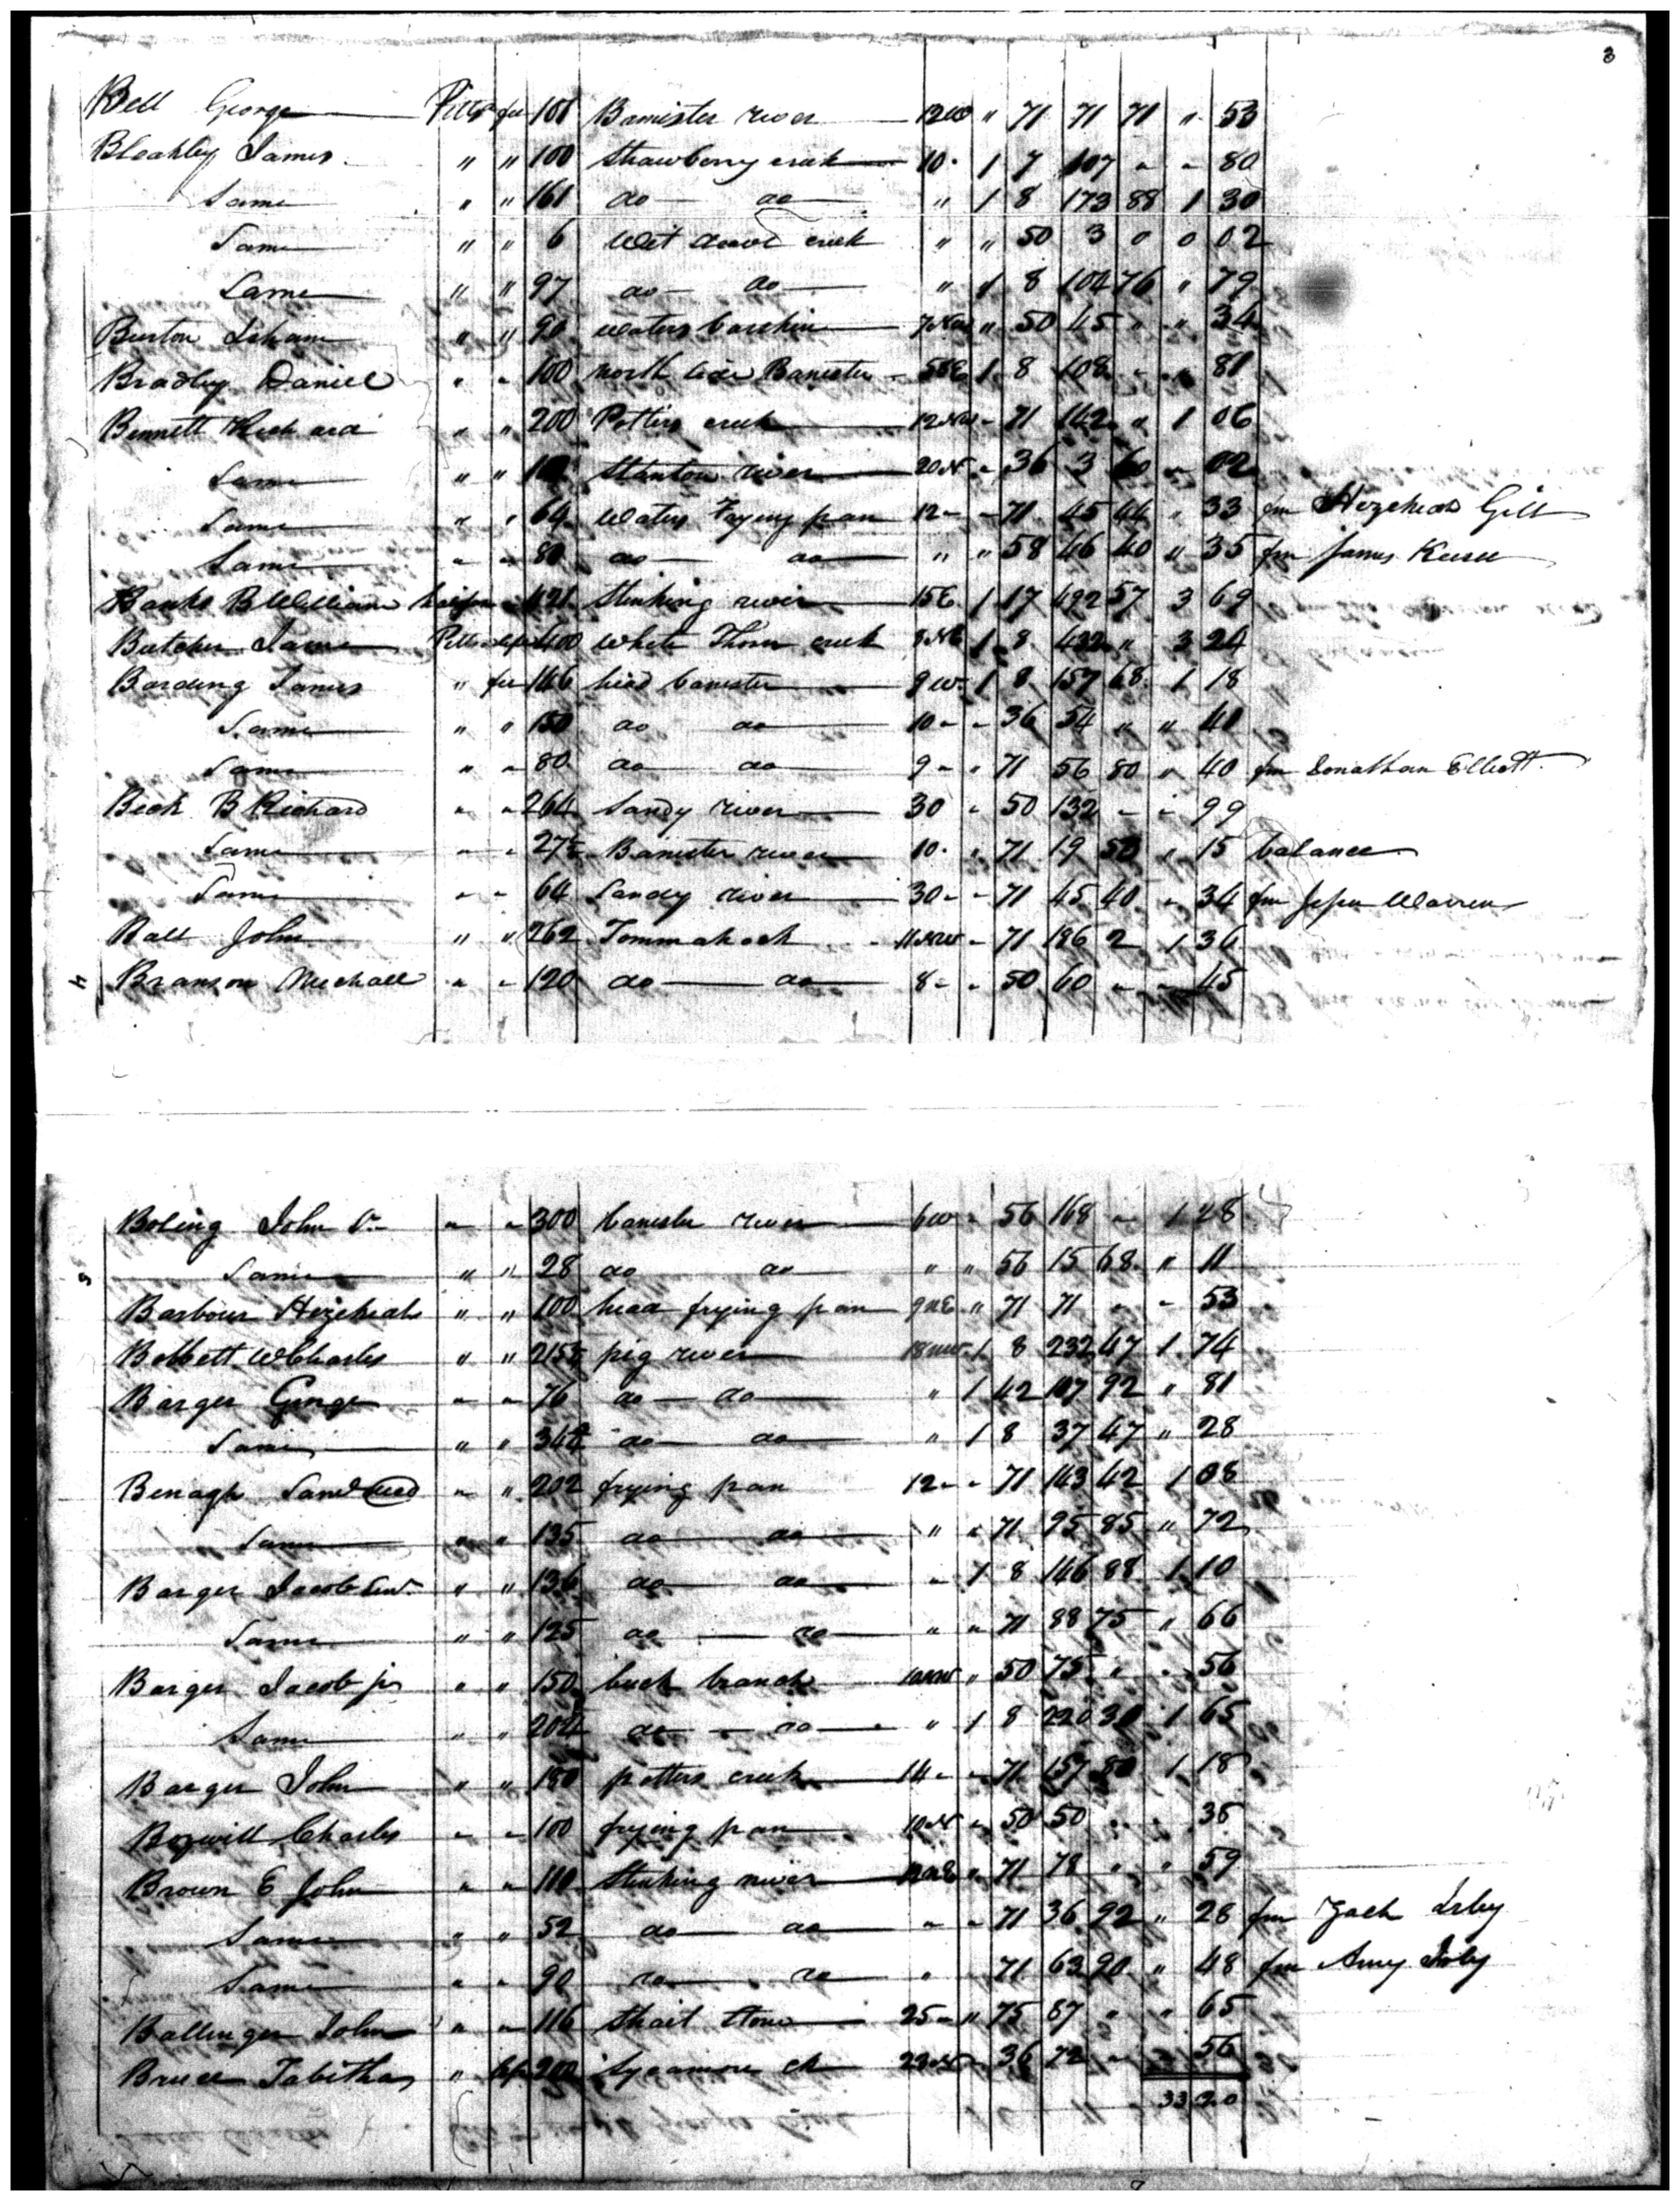 3
Bell George Pitts fee 101 Banister river 12W " 71 71 71 " 53
Bleakley James " " 100 Strawberry creek 10 " 1 7 107 " " 80
Same " " 161 do do " 1 8 173 88 1 30
Same " " 6 creek " " 50 3 0 0 02
Same " " 97 do do " 1 8 104 76 " 79
Burton Isham " " 90 waters " 50 45 " " 34
Bradley Daniel " " 100 north side Banister 1 8 108 " " 81
Bennett Richard " " 200 Potters creek 12NW " 71 142 " 1 06
Same " " Stanton river 20N " 36 3 60 " 02
Same " " 64 Waters Frying pan 12 " " 71 45 44 " 33 fm Hezekiah Gill
Same " " 80 do do " " 58 46 40 " 35 fm James
Banks B William halifax " 421 Stinking river 15E 1 17 492 57 3 69
Butcher James Pitts 400 White Thorn creek 8NE 1 8 432 " 3 24
Bording James " fee 146 head banister 9W 1 8 157 68 1 18
Same " " 150 do do 10 " " 36 54 " " 41
Same " " 80 do do 9 " " 71 56 80 " 40 fm Jonathan Elliott
Beck B Richard " " 264 Sandy river 30 " 50 132 " " 99
Same " " 27½ Banister river 10 " " 71 19 53 " 15 balance
Same " " 64 Sandy river 30 " " 71 45 40 " 34 fm Warren
Ball John " " 262 Tommahock 11NW " 71 186 2 1 36
4 Branson Michall " " 120 do do 8 " " 50 60 " " 45
Boling John Sr " " 300 banister river 6W " 56 168 " 1 28
5 Same " " 28 do do " " 56 15 68 " 11
Barbour Hezekiah " " 100 head frying pan 9NE " 71 71 " " 53
Bobbett W Charles " " 215¼ pig river 18NW 1 8 232 47 1 74
Barger George " " 76 do do " 1 42 107 92 " 81
Same " " do do " 1 8 37 47 " 28
Benagh " " 202 frying pan 12 " " 71 143 42 1 08
Same " " 135 do do " " 71 95 85 " 72
Barger Jacob Senr " " 136 do do " 1 8 146 88 1 10
Same " " 125 do do " " 71 88 75 " 66
Barger Jacob jr " " 150 buck branch 10NW " 50 75 " " 56
Same " " 204 do do " 1 8 220 30 1 65
Barger John " " 180 potters creek 14 " " 71 157 80 1 18
Bozwill Charles " " 100 frying pan 10N " 50 50 " " 38
Brown E John " " 110 Stinking river " 71 78 " " 59
Same " " 52 do do " " 71 36 92 " 28 fm Zach Irby
Same " " 90 do do " 71 63 90 " 48 fm Amy Irby
Ballinger John " " 116 Strait Stone 25 " " 75 87 " " 65
Bruce Tabitha " 200 Sycamore ck 22N " 36 72 " 56
33 20